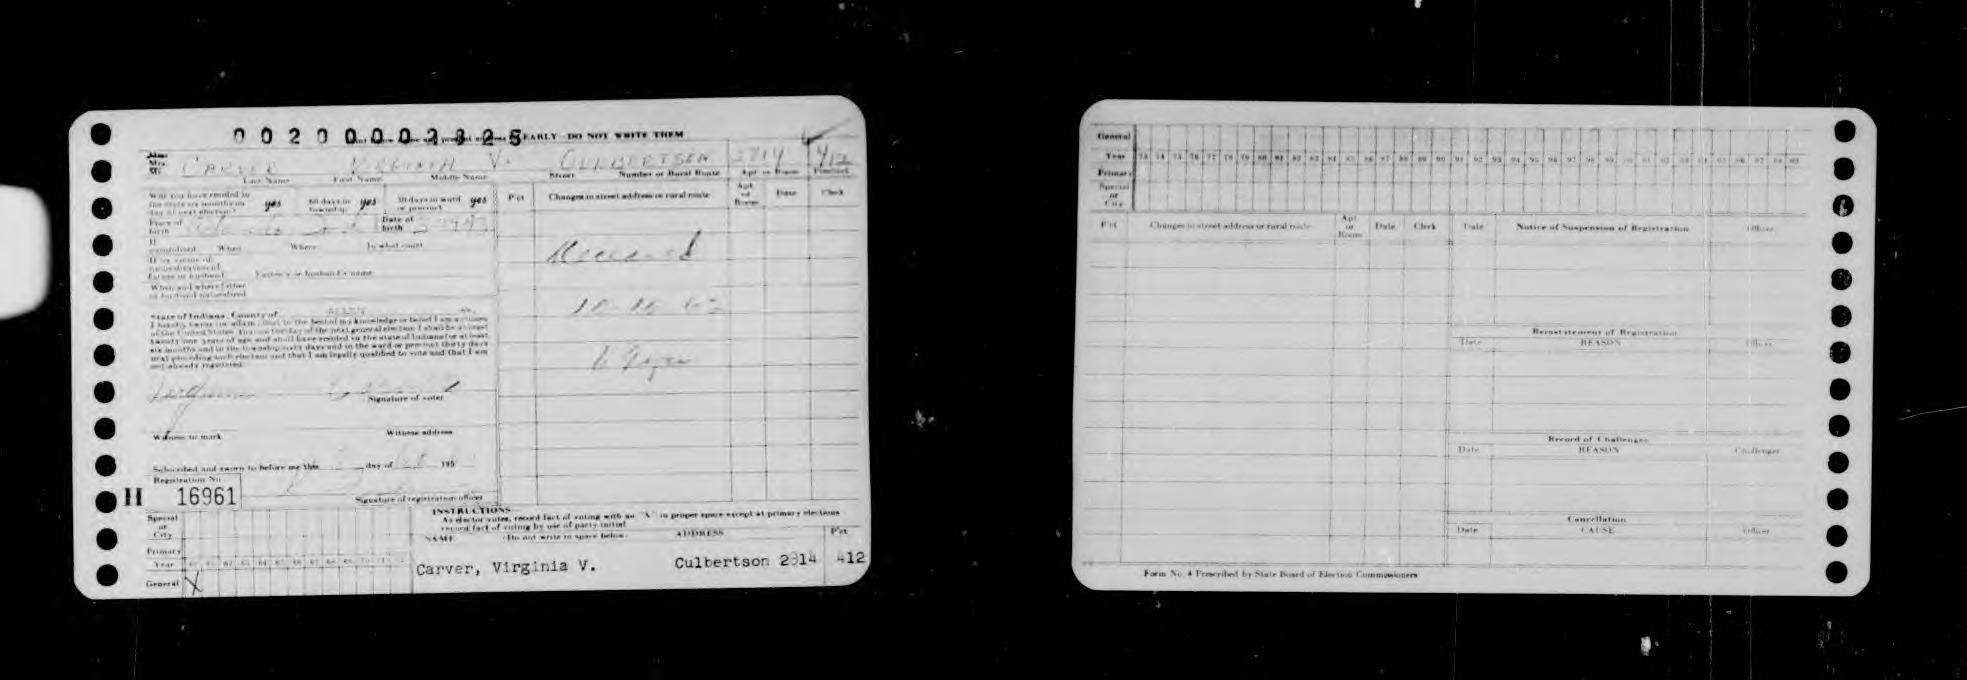 00200002825
EARLY - DO NOT WRITE THEM
Mrs. CARVER VIRGINIA V. CULBERTSON 2814 412
Last Name First Name Middle Name Street Number or Rural Route Apt. or Room Precinct
Will you have resided in
the state six months on yes 60 days in township yes 30 days in ward or precinct yes
day of next election?
Place of birth Date of birth
If naturalized When Where In what court
If by virtue of
naturalization of
father or husband Father's or husband's name
When and where father
or husband naturalized
State of Indiana, County of ALLEN ss.
I hereby swear (or affirm) that to the best of my knowledge or belief I am a citizen
of the United States. That on the day of the next general election I shall be at least
twenty-one years of age and shall have resided in the state of Indiana for at least
six months and in the township sixty days and in the ward or precinct thirty days
next preceding such election and that I am legally qualified to vote and that I am
not already registered.
Virginia Carver
Signature of voter
Witness to mark Witness address
Subscribed and sworn to before me this day of 195
Registration No.
H 16961
Signature of registration officer
Pct Changes in street address or rural route Apt. or Room Date Clerk
Deceased
INSTRUCTIONS
As elector votes, record fact of voting with an "X" in proper space except at primary elections
record fact of voting by use of party initial
Special or City
Primary
Year
General X
NAME (Do not write in space below) ADDRESS Pct
Carver, Virginia V. Culbertson 2814 412
General
Year 73 74 75 76 77 78 79 80 81 82 83 84 85 86 87 88 89 90 91 92 93 94 95 96 97 98 99 00 01 02 03 04 05 06 07 08 09
Primary
Special or City
Pct Changes in street address or rural route Apt. or Room Date Clerk
Date Notice of Suspension of Registration Officer
Reinstatement of Registration
Date REASON Officer
Record of Challenges
Date REASON Challenger
Cancellation
Date CAUSE Officer
Form No. 4 Prescribed by State Board of Election Commissioners